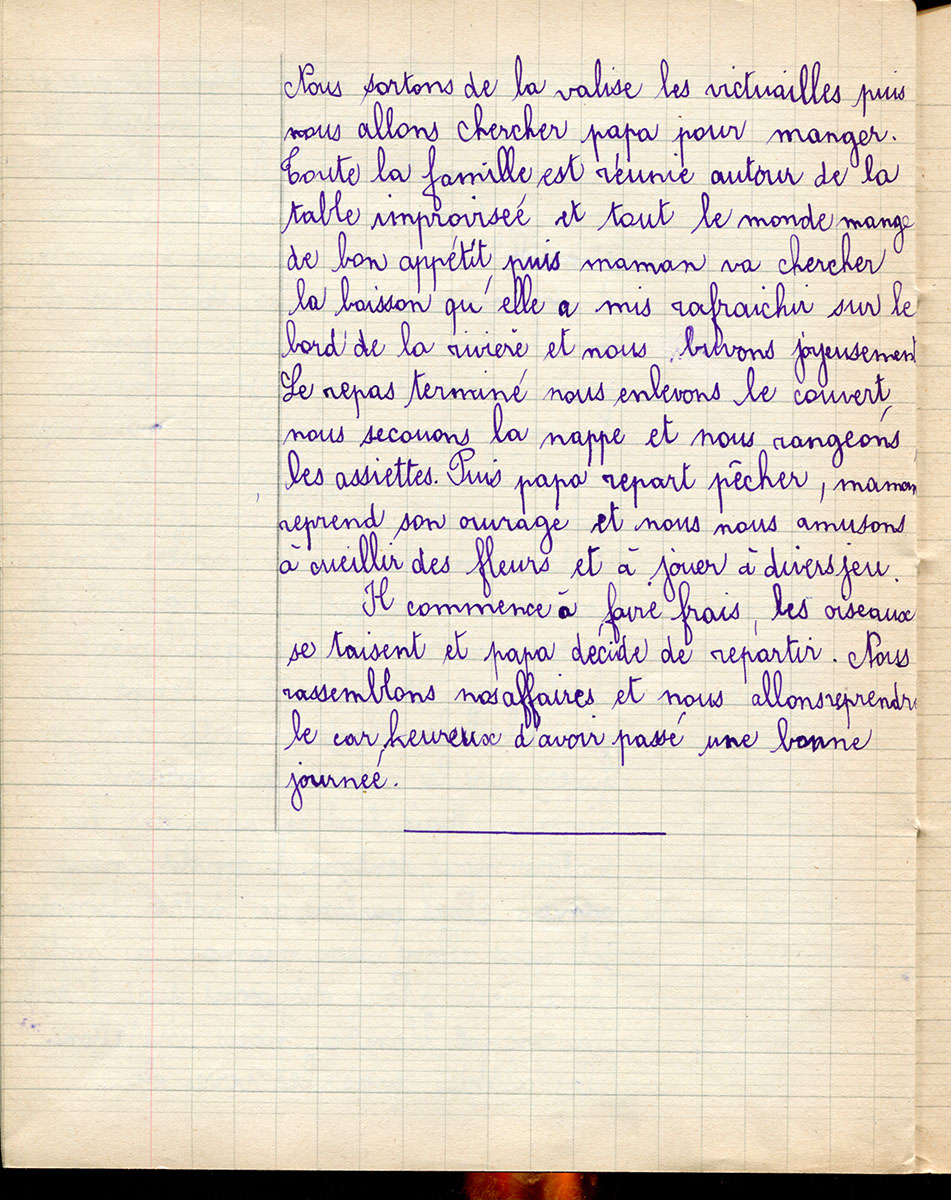 Nous sortons de la valise les victuailles puis
nous allons chercher papa pour manger.
Toute la famille est réunie autour de la
table improviseé et tout le monde mange
de bon appétit puis maman va chercher
la boisson qu'elle a mis rafraichir sur le
bord de la riviere et nous buvons joyeusement
Le repas terminé nous enlevons le couvert,
nous secouons la nappe et nous rangeons
les assiettes. Puis papa repart pêcher, maman
reprend son ouvrage et nous nous amusons
à cueillir des fleurs et à jouer à divers jeu.
Il commence à faire frais, les oiseaux
se taisent et papa décide de repartir. Nous
rassemblons nos affaires et nous allons reprendre
le car, heureux d'avoir passé une bonne
journeé.